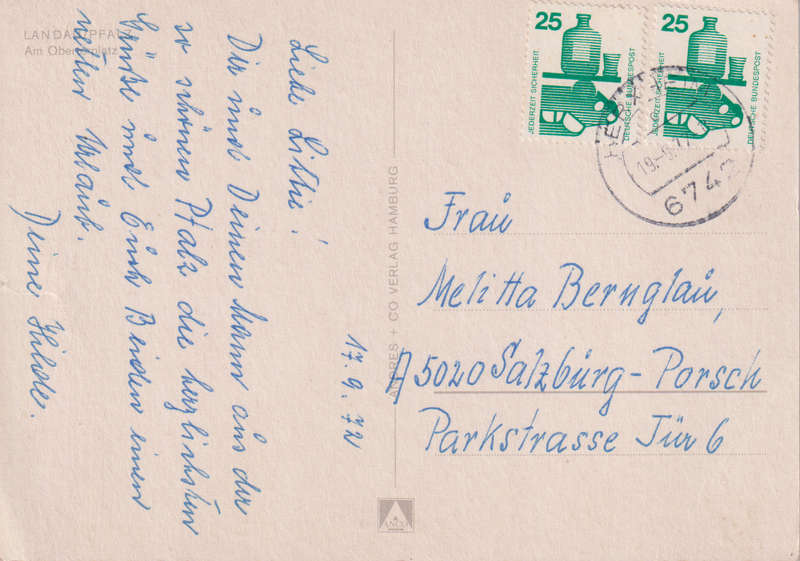 LANDAU/PFALZ
Am Obertorplatz
Liebe Littie!
Dir und Deinem Mann aus der
so schönen Pfalz die herzlichsten
Grüße und Euch Beiden einen
netten Urlaub.
Deine Hilde.
17.9.72
ANDRES + CO VERLAG HAMBURG
ANCO
25
JEDERZEIT SICHERHEIT
DEUTSCHE BUNDESPOST
25
JEDERZEIT SICHERHEIT
DEUTSCHE BUNDESPOST
6742
Frau
Melitta Bernglau,
A 5020 Salzburg-Porsch
Parkstrasse Tür 6